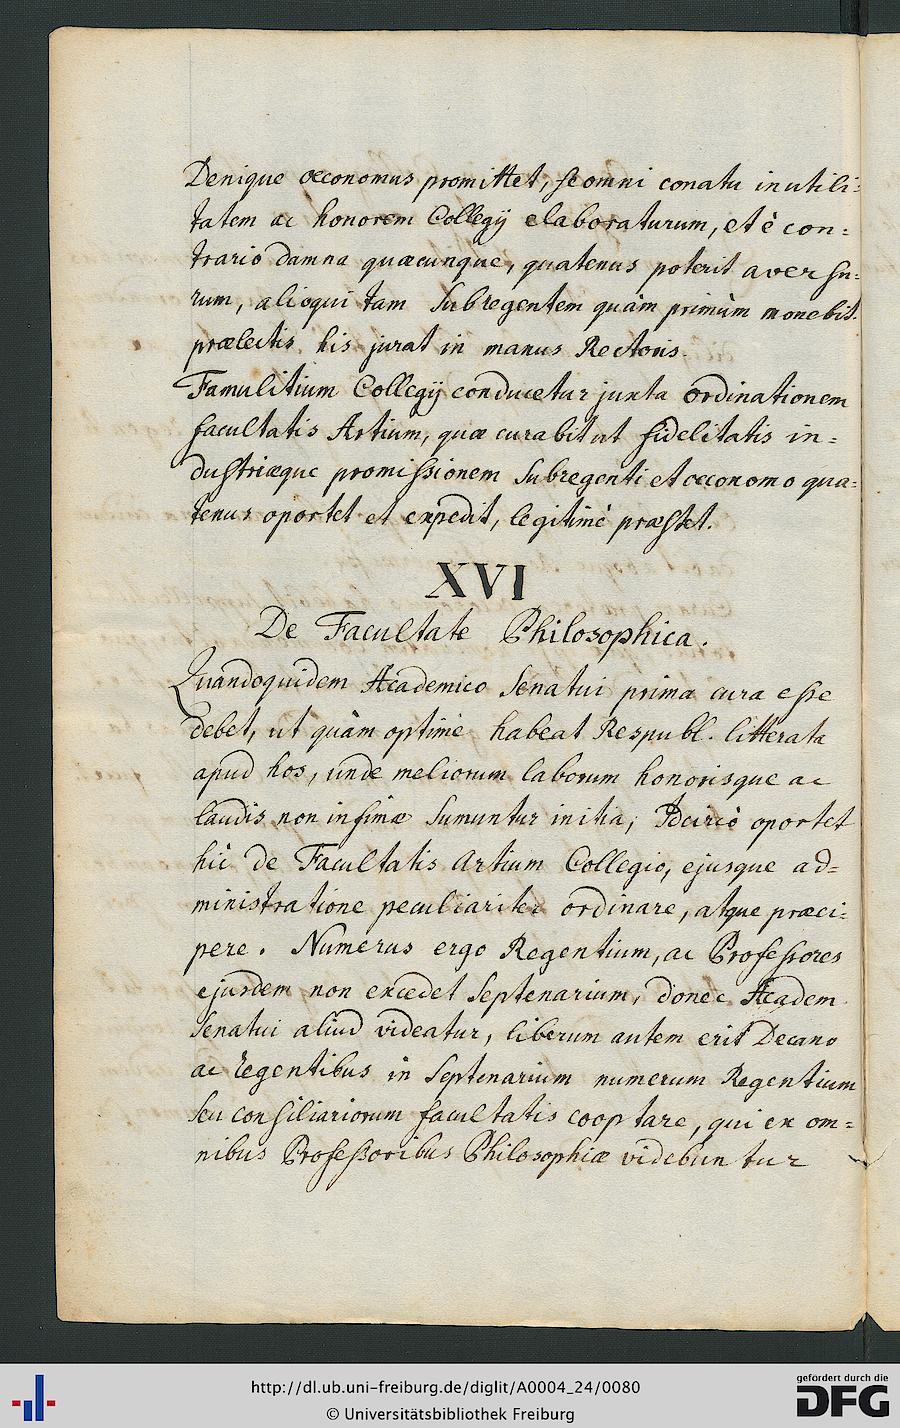 Denique œconomus promittet, se omni conatu in utili=
tatem ac honorem Collegij elaboraturum, et è con=
trario damna quæcunque, quatenus poterit aversu=
rum, alioqui tam Subregentem quàm primùm monebit.
prælectis his jurat in manus Rectoris.
Famulitium Collegij conducetur juxta ordinationem
facultatis Artium, quæ curabit ut fidelitatis in=
dustriæque promissionem Subregenti et œconomo qua=
tenus oportet et expedit, legitimè præstet.
XVI
De Facultate Philosophica.
Quandoquidem Academico Senatui prima cura esse
debet, ut quàm optimè habeat Respubl. litterata
apud hos, unde meliorum laborum honorisque ac
laudis non infimæ sumuntur initia; Idcircò oportet
hîc de Facultatis Artium Collegio, ejusque ad=
ministratione peculiariter ordinare, atque præci=
pere. Numerus ergo Regentium, ac Professores
ejusdem non excedet Septenarium, donec Academ.
Senatui aliud videatur, liberum autem erit Decano
ac regentibus in Septenarium numerum Regentium
seu consiliariorum facultatis cooptare, qui ex om=
nibus Professoribus Philosophiæ videbuntur
http://dl.ub.uni-freiburg.de/diglit/A0004_24/0080
© Universitätsbibliothek Freiburg
gefördert durch die
DFG